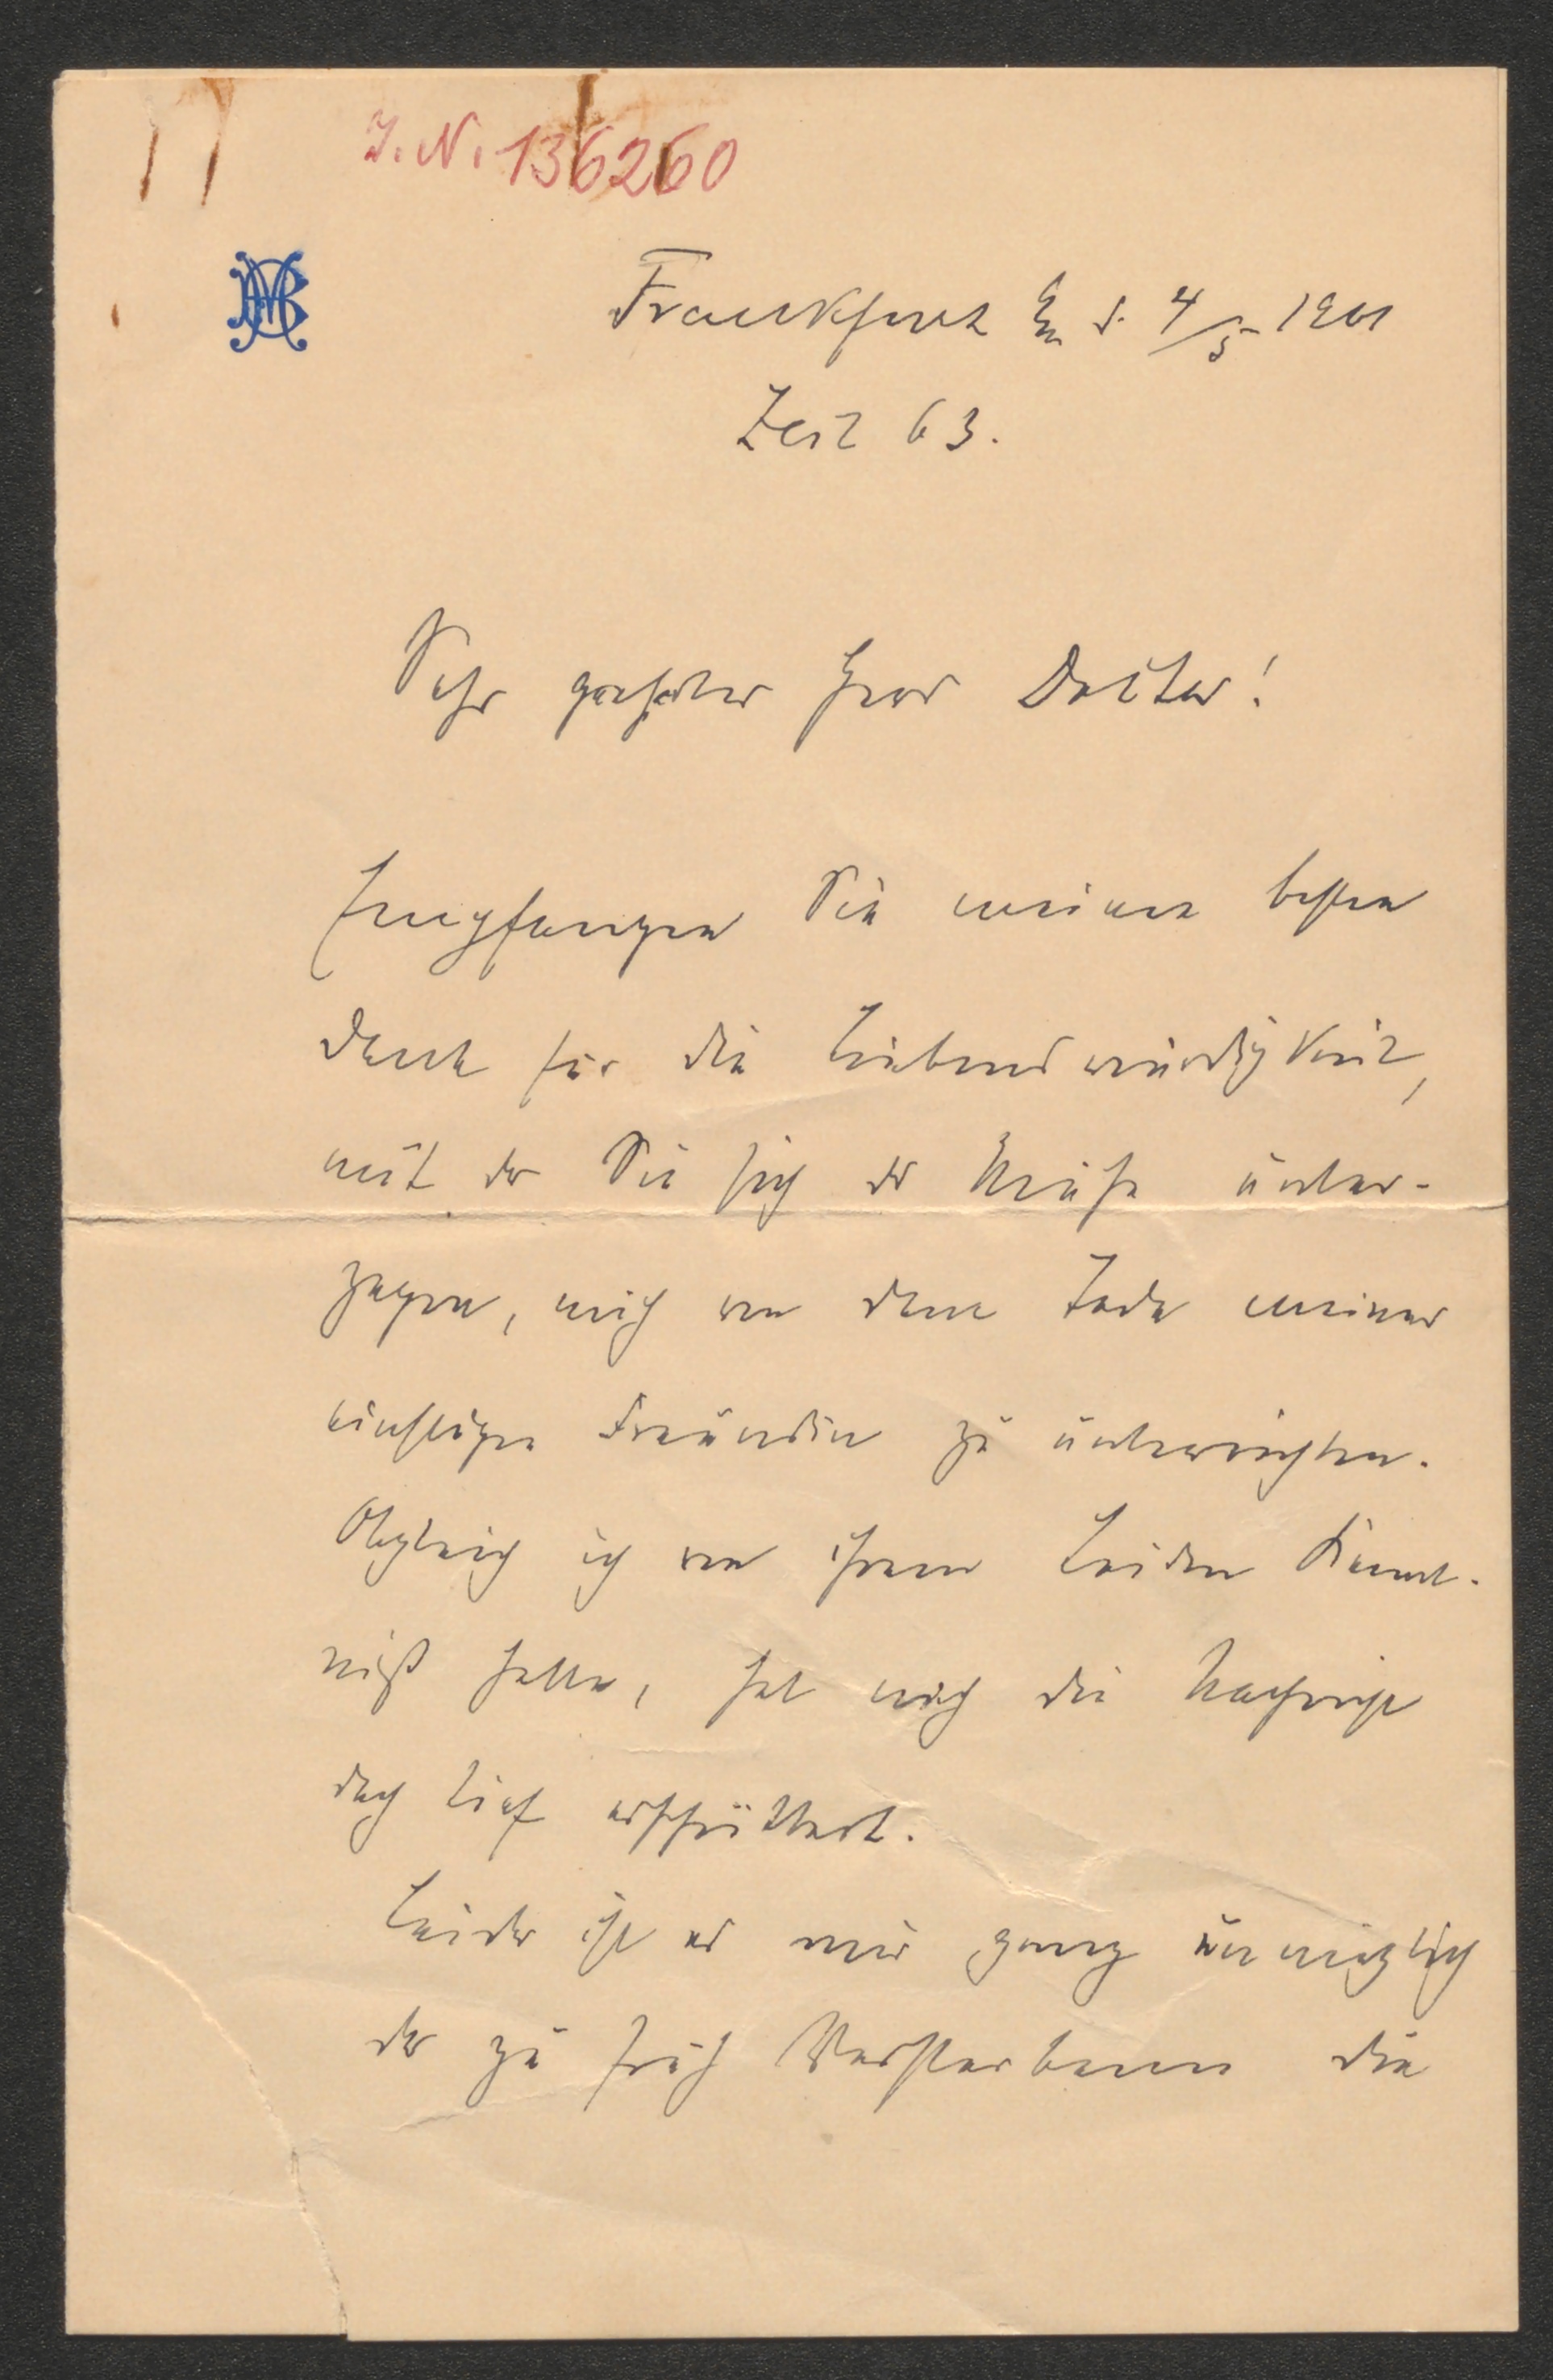 J. N. 136260
Frankfurt a/M d. 4/5 1901
Zeil 63.
Sehr geehrter Herr Doctor!
Empfangen Sie meinen besten
Dank für die Liebenswürdigkeit,
mit der Sie sich der Mühe unter-
zogen, mich von dem Tode meiner
einstigen Freundin zu unterrichten.
Obgleich ich von ihrem Leiden Kennt-
niß hatte, hat mich die Nachricht
doch tief erschüttert.
Leider ist es mir ganz unmöglich
der zu früh Verstorbenen die